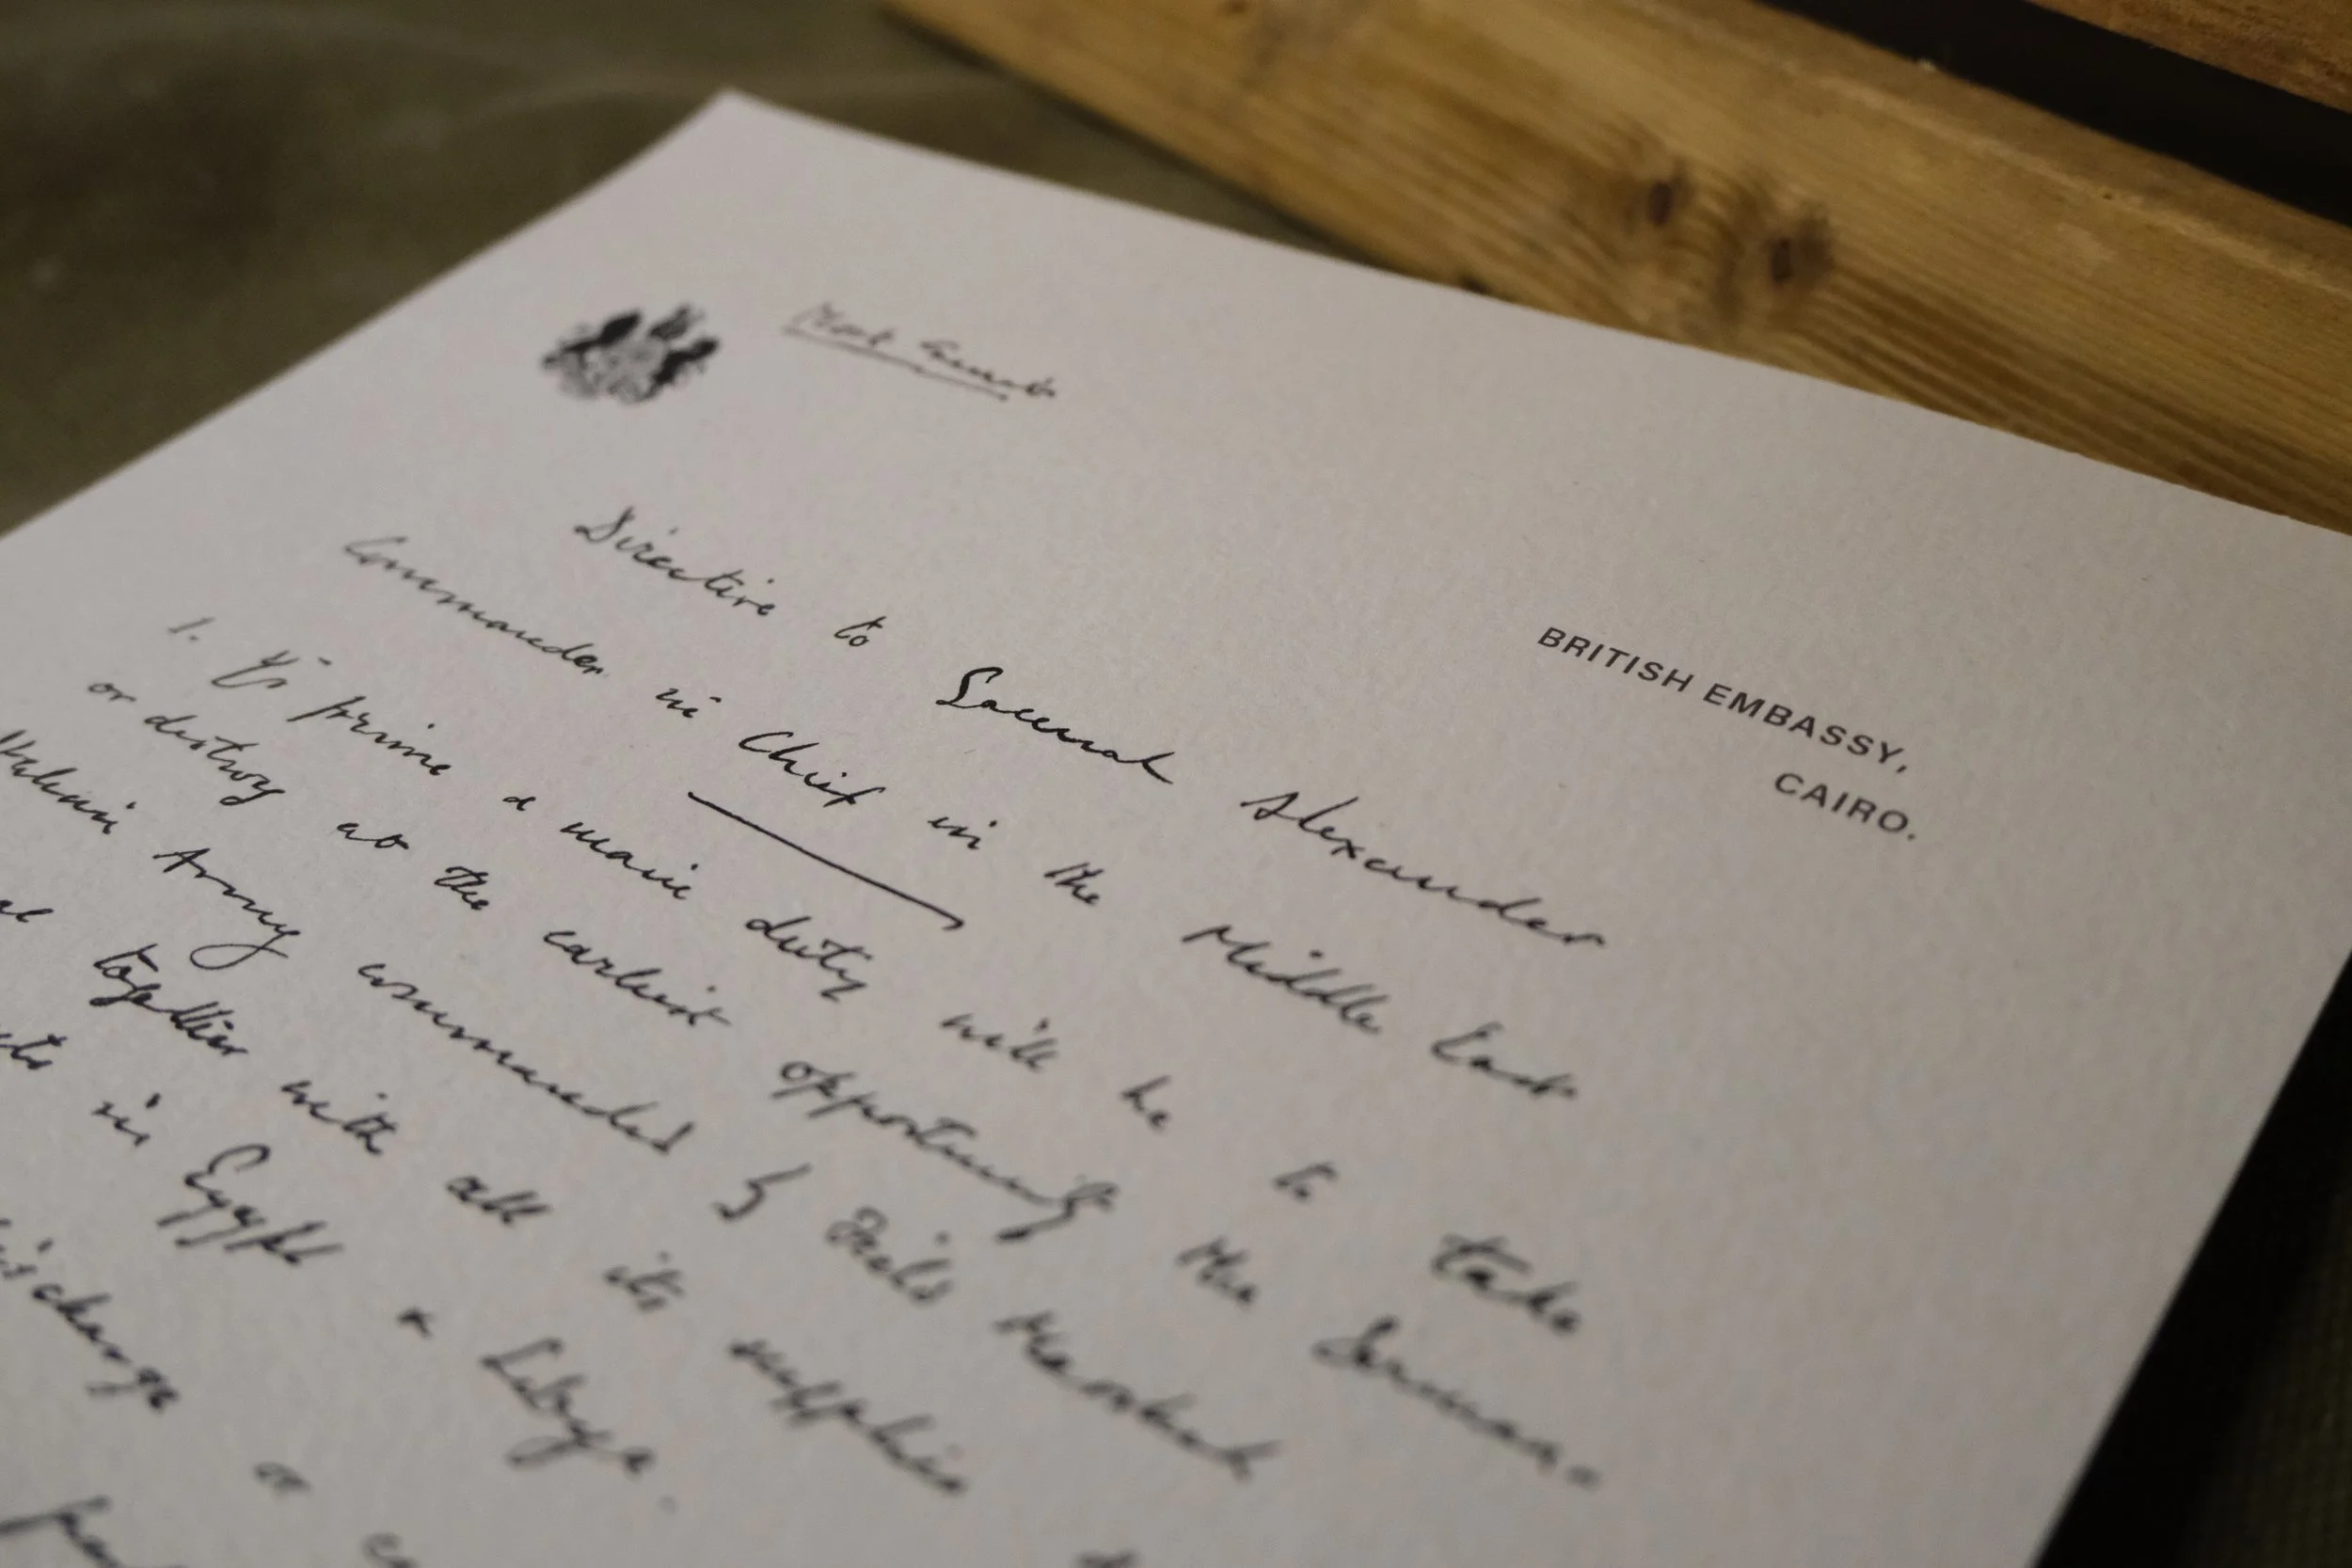 Most Secret
BRITISH EMBASSY,
CAIRO.
Directive to General Alexander
Commander in Chief in the Middle East
1. Yr prime & main duty will be to take
or destroy at the earliest opportunity the German-
Italian Army commanded by Field Marshal
together with all its supplies
in Egypt & Libya.
discharge or